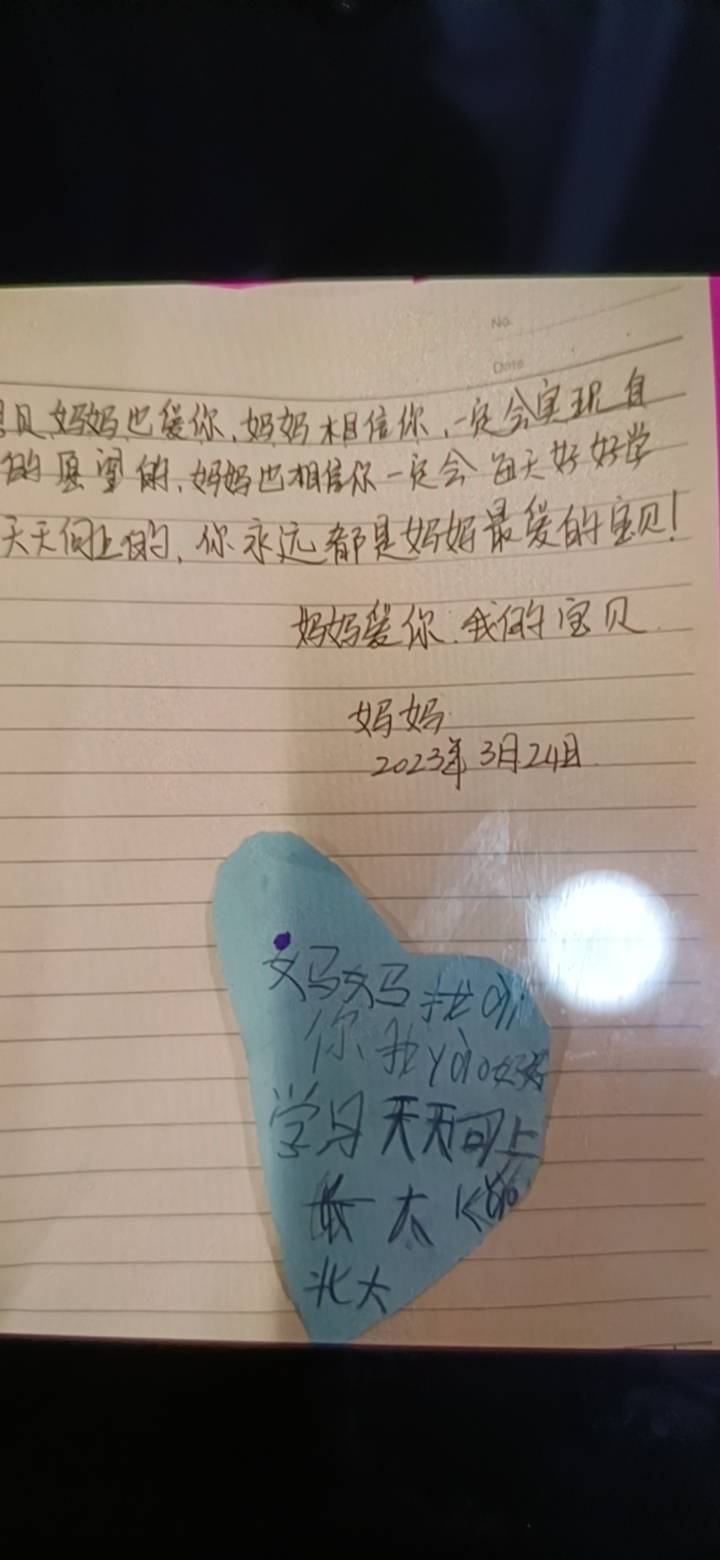 No.
Date
贝,妈妈也爱你,妈妈相信你,一定会实现自
的愿望的,妈妈也相信你一定会每天好好学
天天向上的,你永远都是妈妈最爱的宝贝!
妈妈爱你,我的宝贝
妈妈
2023年3月24日
妈妈我ài
你我yào好好
学习天天向上
大 kǎo
北大